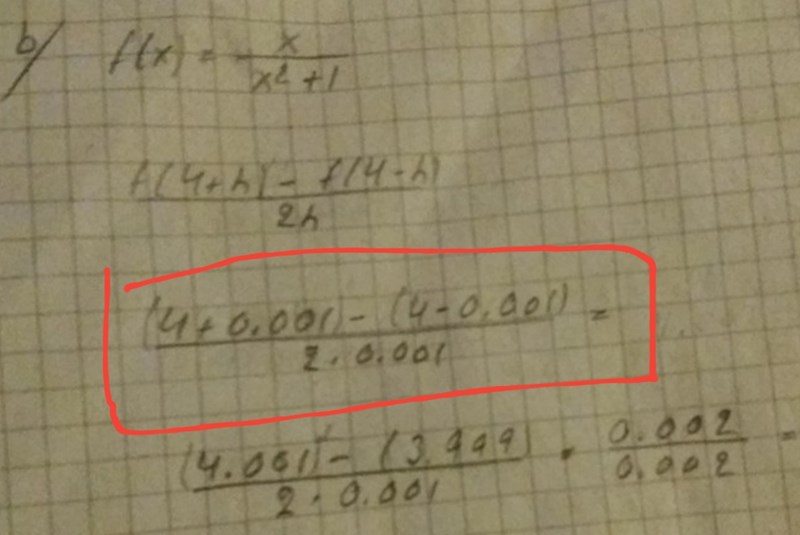 b/ f(x) = x / x² + 1
f(4+h) - f(4-h) / 2h
(4+0.001) - (4-0.001) / 2 · 0.001 =
(4.001) - (3.999) / 2 · 0.001 = 0.002 / 0.002 =